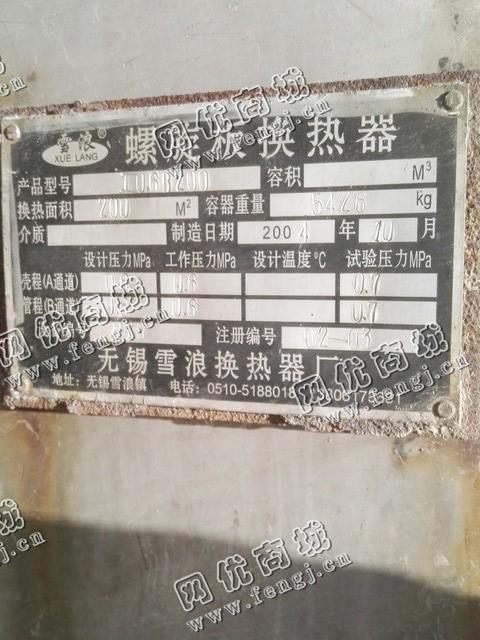 雪浪®
XUE LANG
螺旋板换热器
产品型号 I06B200 容积 M³
换热面积 200 M² 容器重量 5426 kg
介质 制造日期 2004 年 10 月
设计压力MPa 工作压力MPa 设计温度℃ 试验压力MPa
壳程(A通道) 0.6 0.7
管程(B通道) 0.6 0.7
注册编号 02-03
无锡雪浪换热器厂
地址: 无锡雪浪镇 电话: 0510-518801
网优商城
www.fengj.cn
网优商城
www.fengj.cn
网优商城
www.fengj.cn
网优商城
www.fengj.cn
网优商城
www.fengj.cn
网优商城
www.fengj.cn